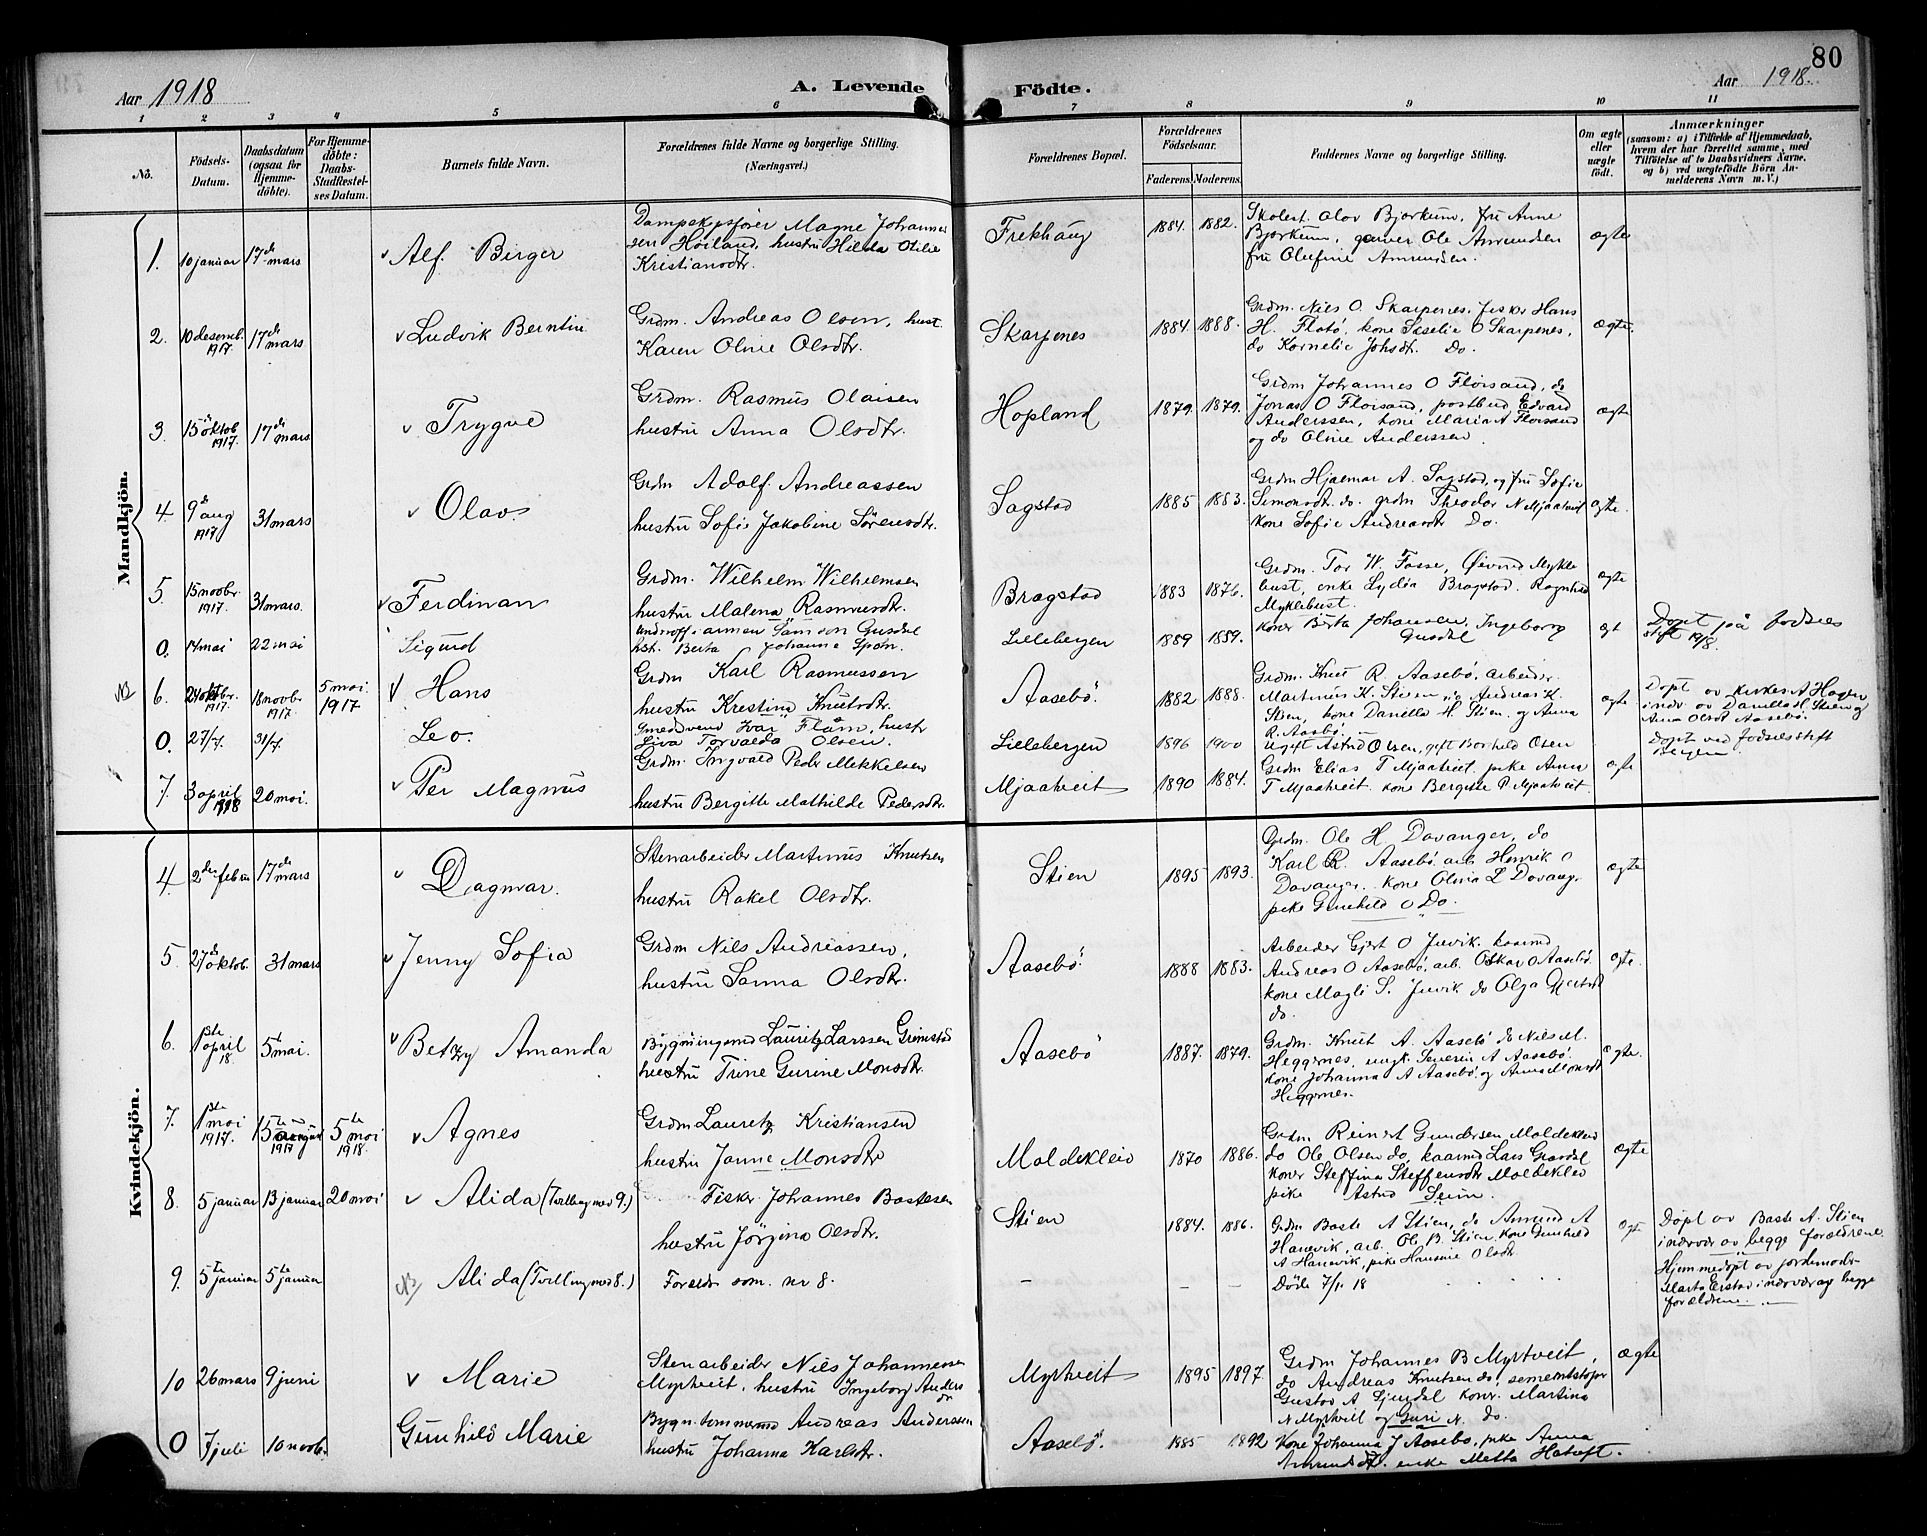 80
Aar 1918
A. Levende Födte.
Aar 1918.
1 2 3 4 5 6 7 8 9 10 11
No.
Födsels-Datum.
Daabsdatum (ogsaa for Hjemmedöbte).
For Hjemmedöbte: Daabs-Stadfestelses Datum.
Barnets fulde Navn.
Forældrenes fulde Navne og borgerlige Stilling.
(Næringsvei.)
Forældrenes Bopæl.
Forældrenes Födselsaar.
Faderens. Moderens.
Faddernes Navne og borgerlige Stilling.
Om ægte eller uægte födt.
Anmærkninger
(saasom: a) i Tilfælde af Hjemmedaab, hvem der har forrettet samme, med Tilföielse af to Daabsvidners Navne, og b) ved uægtefödte Börn Anmelderens Navn m.V.)
Mandkjön.
1. 10 januar 17de mars
Alf Birger
Dampskipsfører Magne Johannes
sen Høiland, hustru Hilda Otilie
Kristiansdtr.
Frekhaug
1884. 1882.
Skolest. Olov Bjorkum, fru Anne
Bjorkum, garver Ole Amundsen
fru Olufine Amundsen.
ægte
2. 10 desemb. 1917. 17de mars
Ludvik Berntin
Grdm. Andreas Olsen, hust.
Karen Oline Olsdtr.
Skarpenes
1884. 1888.
Grdm. Niels O. Skarpenes, fisker Hans
H. Flatø, kone O Skarpenes,
do Kornelie Johsdtr. Do.
ægte.
3. 15de oktob 1917. 17de mars
Trygve
Grdm. Rasmus Olaisen
hustru Anna Olsdtr.
Hopland
1879. 1879.
Grdm Johannes O Florsand, do
Jonas O Florsand, postbud Edvard
Anderssen, kone Maria A Florsand
og do Oline Anderssen
ægte
4. 9de aug 1917 31 mars
Olav.
Grdm Adolf Andreassen
hustru Sofie Jakobine Sörensdtr.
Sagstad
1885 1883.
Grdm Hjalmar A. Sagstad, og fru Sofie
Simonsdtr. do. grdm Theodor N Mjaatveit
kone Sofie Andreasdtr Do.
ægte.
5. 15 novbr. 1917. 31 mars.
Ferdinan
Grdm. Wilhelm Wilhelmsen
hustru Malena Rasmusdtr.
Bragstad
1883 1876.
Grdm. Tor W. Fosse, Øivind Mykle
bust, enke Lydia Bragstad. Ragnhild
Myklebust.
ægte
0. 14 mai 22 mai
Sigurd
Underoff. i armen Samson Gusdal
hst. Berta Johanna Spon.
Lillebergen
1889 1889.
Koner Berta Johansen, Ingeborg
Gusdal
egt
Dopt på fodsels
stift 1918.
NB 6. 24 oktbr. 1917. 18 novbr 1917. 5 mai. 1917
Hans
Grdm Karl Rasmussen
hustru Krestina Knutsdtr.
Aasebö.
1882 1888.
Grdm. Knut R. Aasebö, arbeider
Martinus K. Stien, Andreas K.
Stien, kone Danilla H. Stien og Anna
R. Aasbö.
ægte
Döpt av kirkes. A Hagen
indv av Danilla H. Stien og
Anna Olsdt Aasebö.
0. 27/4. 31/4.
Leo.
Smedsvend Ivar Flåm, hustr
Siva Torvalda Olsen.
Lillebergen
1896 1900
Ugift Astrid Olsen, gift Borhild Osen
Dopt ved fodselsstift
Bergen
7. 3 april 1918 20 mai.
Per Magnus
Grdm. Ingvald Peder Mikkelsen
hustru Bergitte Mathilde Pedersdtr.
Mjaatveit
1890 1884.
Grdm Elias T Mjaatveit. pike Anna
T Mjaatveit. kone Bergitte P Mjaatveit
ægte
Kvindekjön.
4. 2den febru 17de mars
Dagmar.
Stenarbeider Martinus Knutsen
hustru Rakel Olsdtr.
Stien
1895 1893.
Grdm. Ole H. Davanger, do
Karl R. Aasebö. arb Henrik O
Davanger. kone Olina L Davang.
pike Gunhild O Do.
ægte
5. 27de oktob. 31 mars
Jenny Sofia
Grdm Nils Andreassen,
hustru Sanna Olsdtr.
Aasebö.
1888 1883.
Arbeider Gjert O Juvik. kaarmd
Andreas O Aasebö, arb. Oskar O Aasebö.
kone Magli S. Juvik do Olga Gjertsdt
do.
ægte.
6. 1ste april 18 5te mai.
Betzy Amanda
Bygningsmd Lauritz Larssen Grimstad
hustru Trine Gurine Monsdtr.
Aasebö
1887. 1879.
Grdm. Knut A. Aasebö do Nils M.
Heggernes, ungk. Severin A Aasebö.
kone Johanna A Aasebö og Anna Monsdt
Heggernes.
ægte.
7. 1ste mai 1917. 15te august 1917 5te mai 1918.
Agnes
Grdm Lauretz Kristiansen
hustru Janne Monsdtr
Moldekleiv
1870 1886.
Grdm Reinert Gundersen Moldekleiv
do Ole Olsen do, kaarmd Lars Grasdal
koner Steffina Steffensdtr Moldekleiv
pike Astrid Seim.
ægte
8. 5 januar 13 januar 20 mai
Alida (Tvilling med 9.)
Fisker Johannes Bastesen
hustru Jörgina Olsdtr.
Stien
1884. 1886.
Grdm Baste A Stien, do Amund A
Hanevik, arb. Ole B. Stien, kone Gunhild
A Hanevik, pike Hansine Olsdtr
egte
Döpt av Baste A. Stien
i nærvær av begge forældrene.
9. 5te januar 5te januar
NB Alida (Tvilling med 8.)
Foreldr som. nr 8.
– – –
Döde 7/1. 18
Hjemmedöpt av jordemoder
Marta Erstad i nærvær av begge
forældrene.
10 26 mars 9 juni
Marie
Stenarbeider Nils Johannessen
Myrtveit, hustru Ingeborg Anders
dtr
Myrtveit
1895 1897.
Grdm Johannes B Myrtveit,
do Andreas Knutsen do, sementstøper
Gustav A Gjendal koner. Martina
N Myrtveit og Guri N. do.
ægte
0 7 juli 10 novb.
Gunhild Marie
Bygn. tømmermd Andreas Anderssen
hustru Johanna Karlsdtr.
Aasebö.
1885 1892
Kone Johanna J Aasebo, pike Anna
Amundsdt. enke Metta Hatvet.